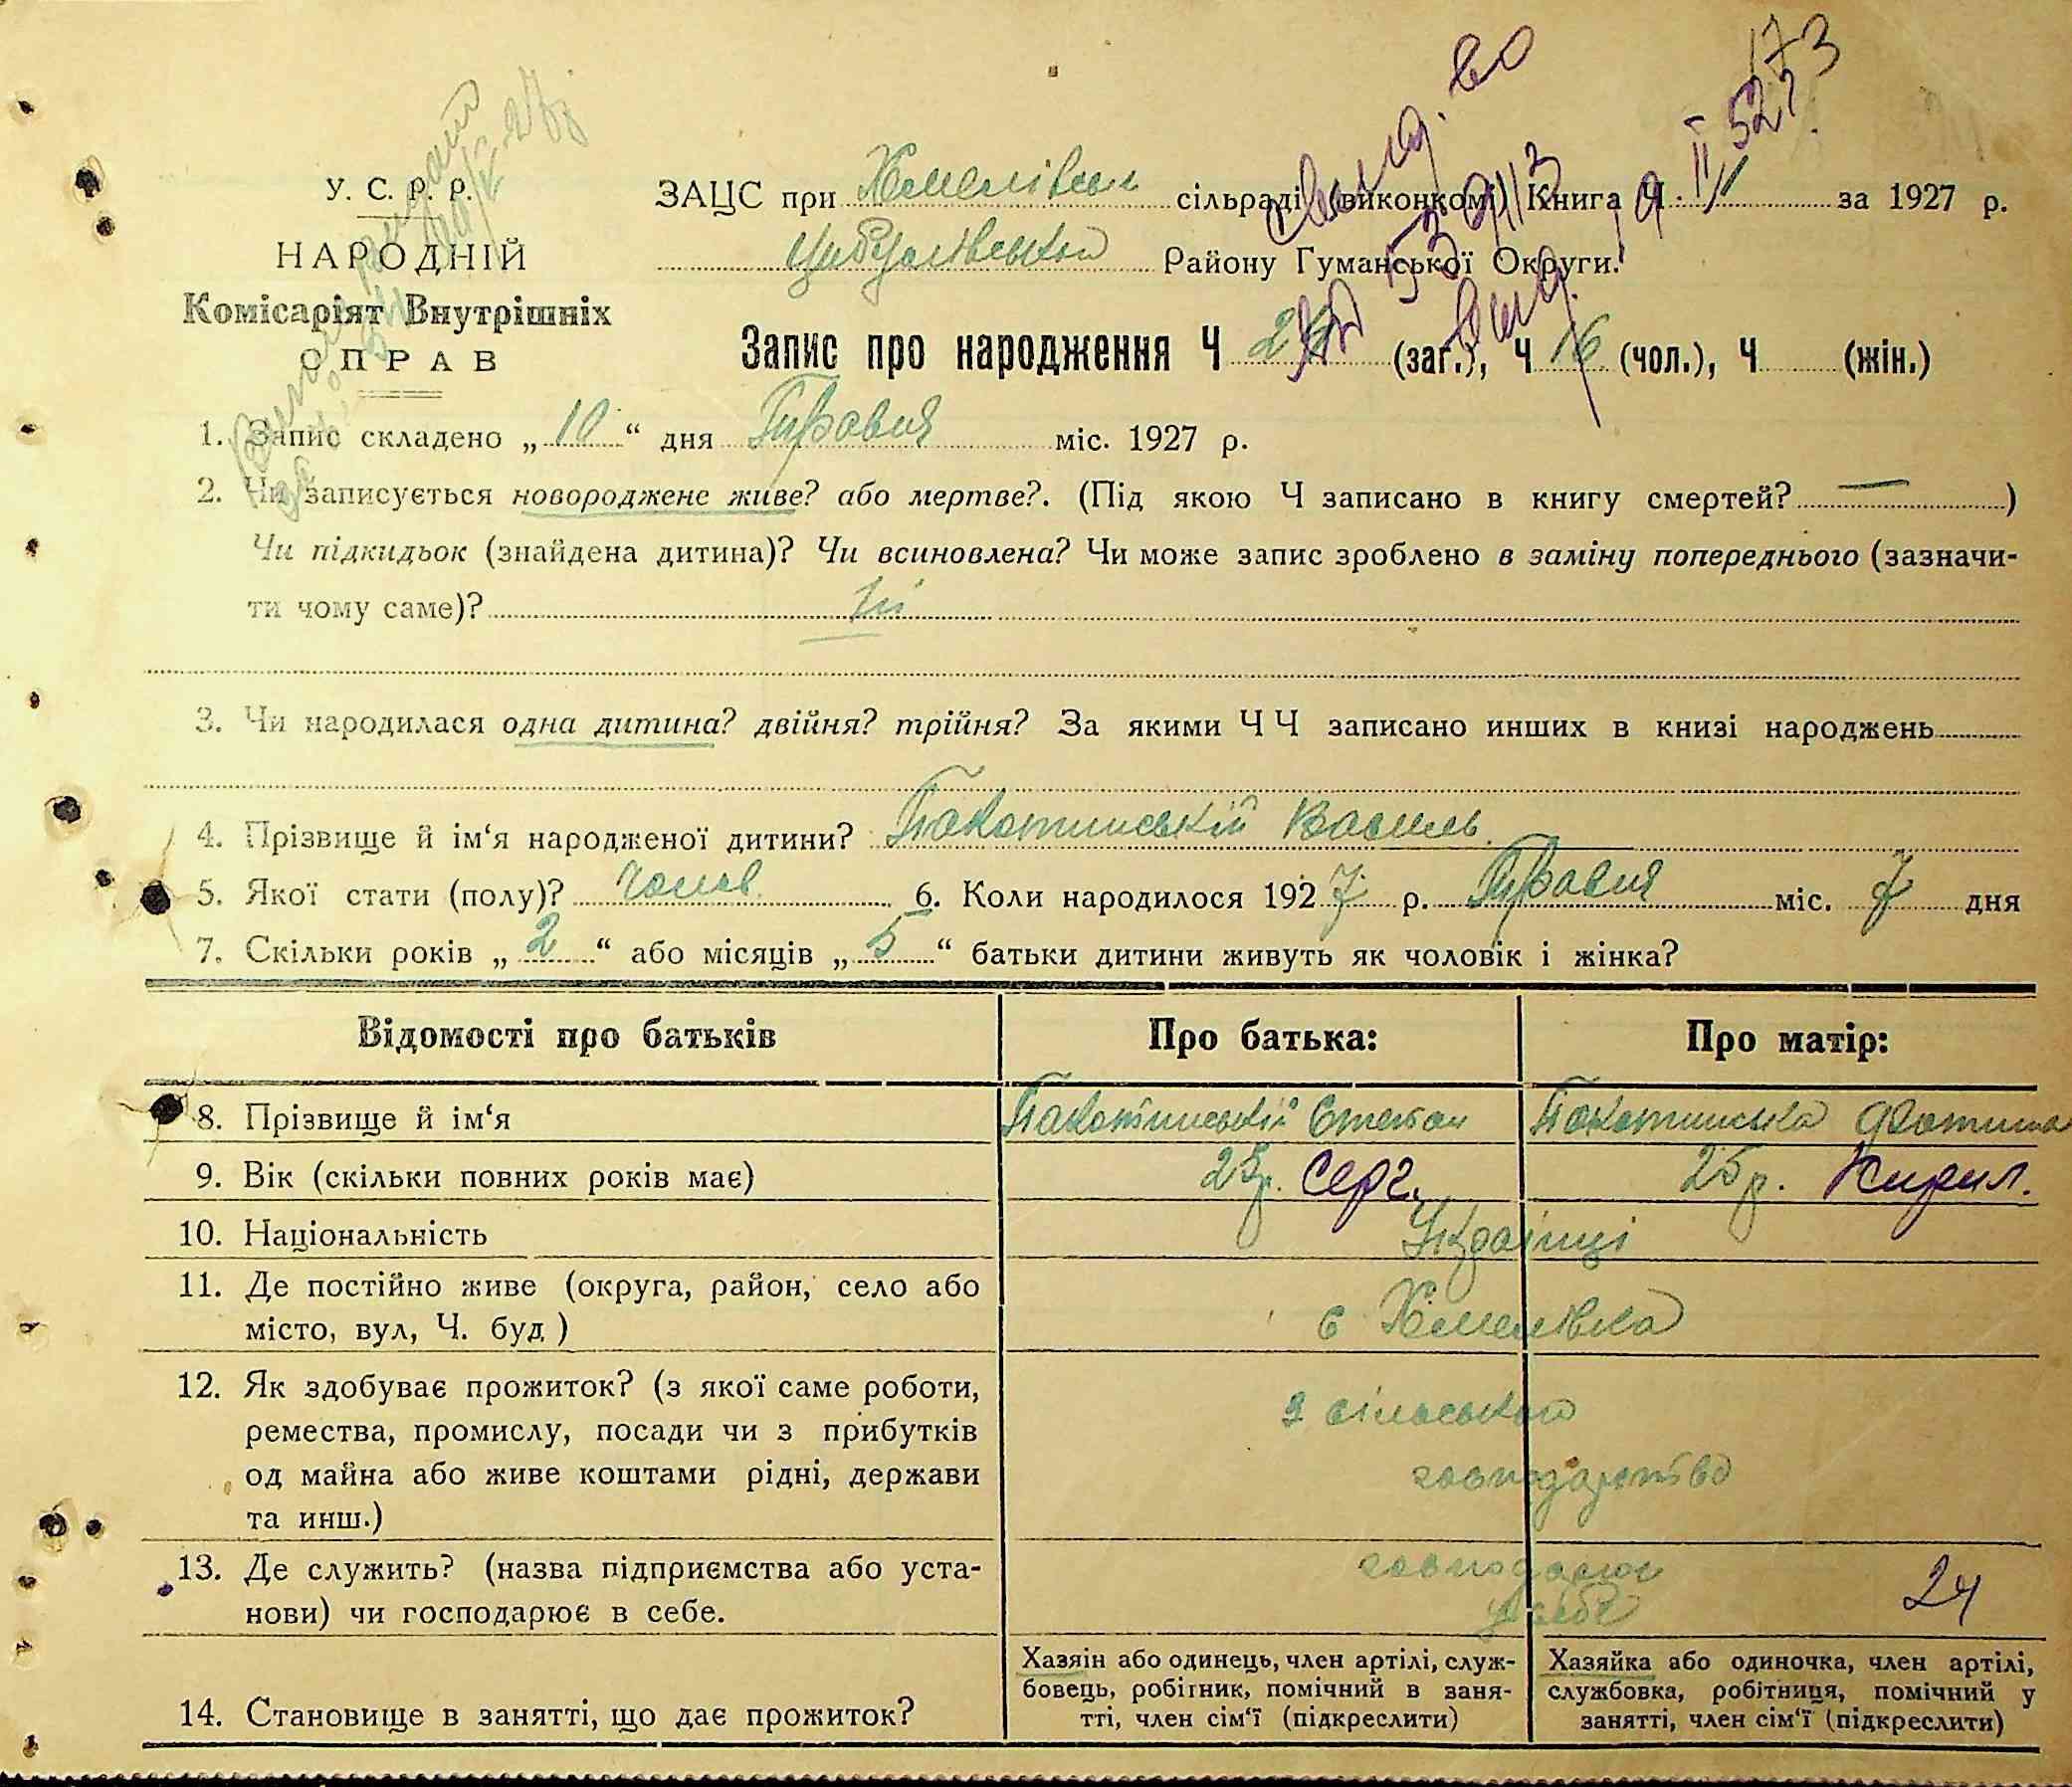 173
У. С. Р. Р.
НАРОДНІЙ
Комісаріят Внутрішніх
СПРАВ
ЗАЦС при сільраді (виконкомі) Книга Ч. за 1927 р.
Цибулівського Району Гуманської Округи.
Запис про народження Ч (заг.), Ч 16 (чол.), Ч (жін.)
1. Запис складено „ 10 “ дня Травня міс. 1927 р.
2. Чи записується новороджене живе? або мертве?. (Під якою Ч записано в книгу смертей? — )
Чи підкидьок (знайдена дитина)? Чи всиновлена? Чи може запис зроблено в заміну попереднього (зазначи-
ти чому саме)? Ні
3. Чи народилася одна дитина? двійня? трійня? За якими Ч Ч записано инших в книзі народжень
4. Прізвище й ім‘я народженої дитини? Василь
5. Якої стати (полу)? Чолов. 6. Коли народилося 1927 р. Травня міс. 7 дня
7. Скільки років „ 2 “ або місяців „ 5 “ батьки дитини живуть як чоловік і жінка?
Відомості про батьків Про батька: Про матір:
8. Прізвище й ім‘я Степан
9. Вік (скільки повних років має) Серг. 25 р. Кирил.
10. Національність Українці
11. Де постійно живе (округа, район, село або
місто, вул, Ч. буд )
с Хмелівка
12. Як здобуває прожиток? (з якої саме роботи,
ремества, промислу, посади чи з прибутків
од майна або живе коштами рідні, держави
та инш.)
з сільського
господарства
13. Де служить? (назва підприємства або уста-
нови) чи господарює в себе.
у себе
24
14. Становище в занятті, що дає прожиток?
Хазяін або одинець, член артілі, служ-
бовець, робітник, помічний в заня-
тті, член сім‘ї (підкреслити)
Хазяйка або одиночка, член артілі,
службовка, робітниця, помічний у
занятті, член сім‘ї (підкреслити)